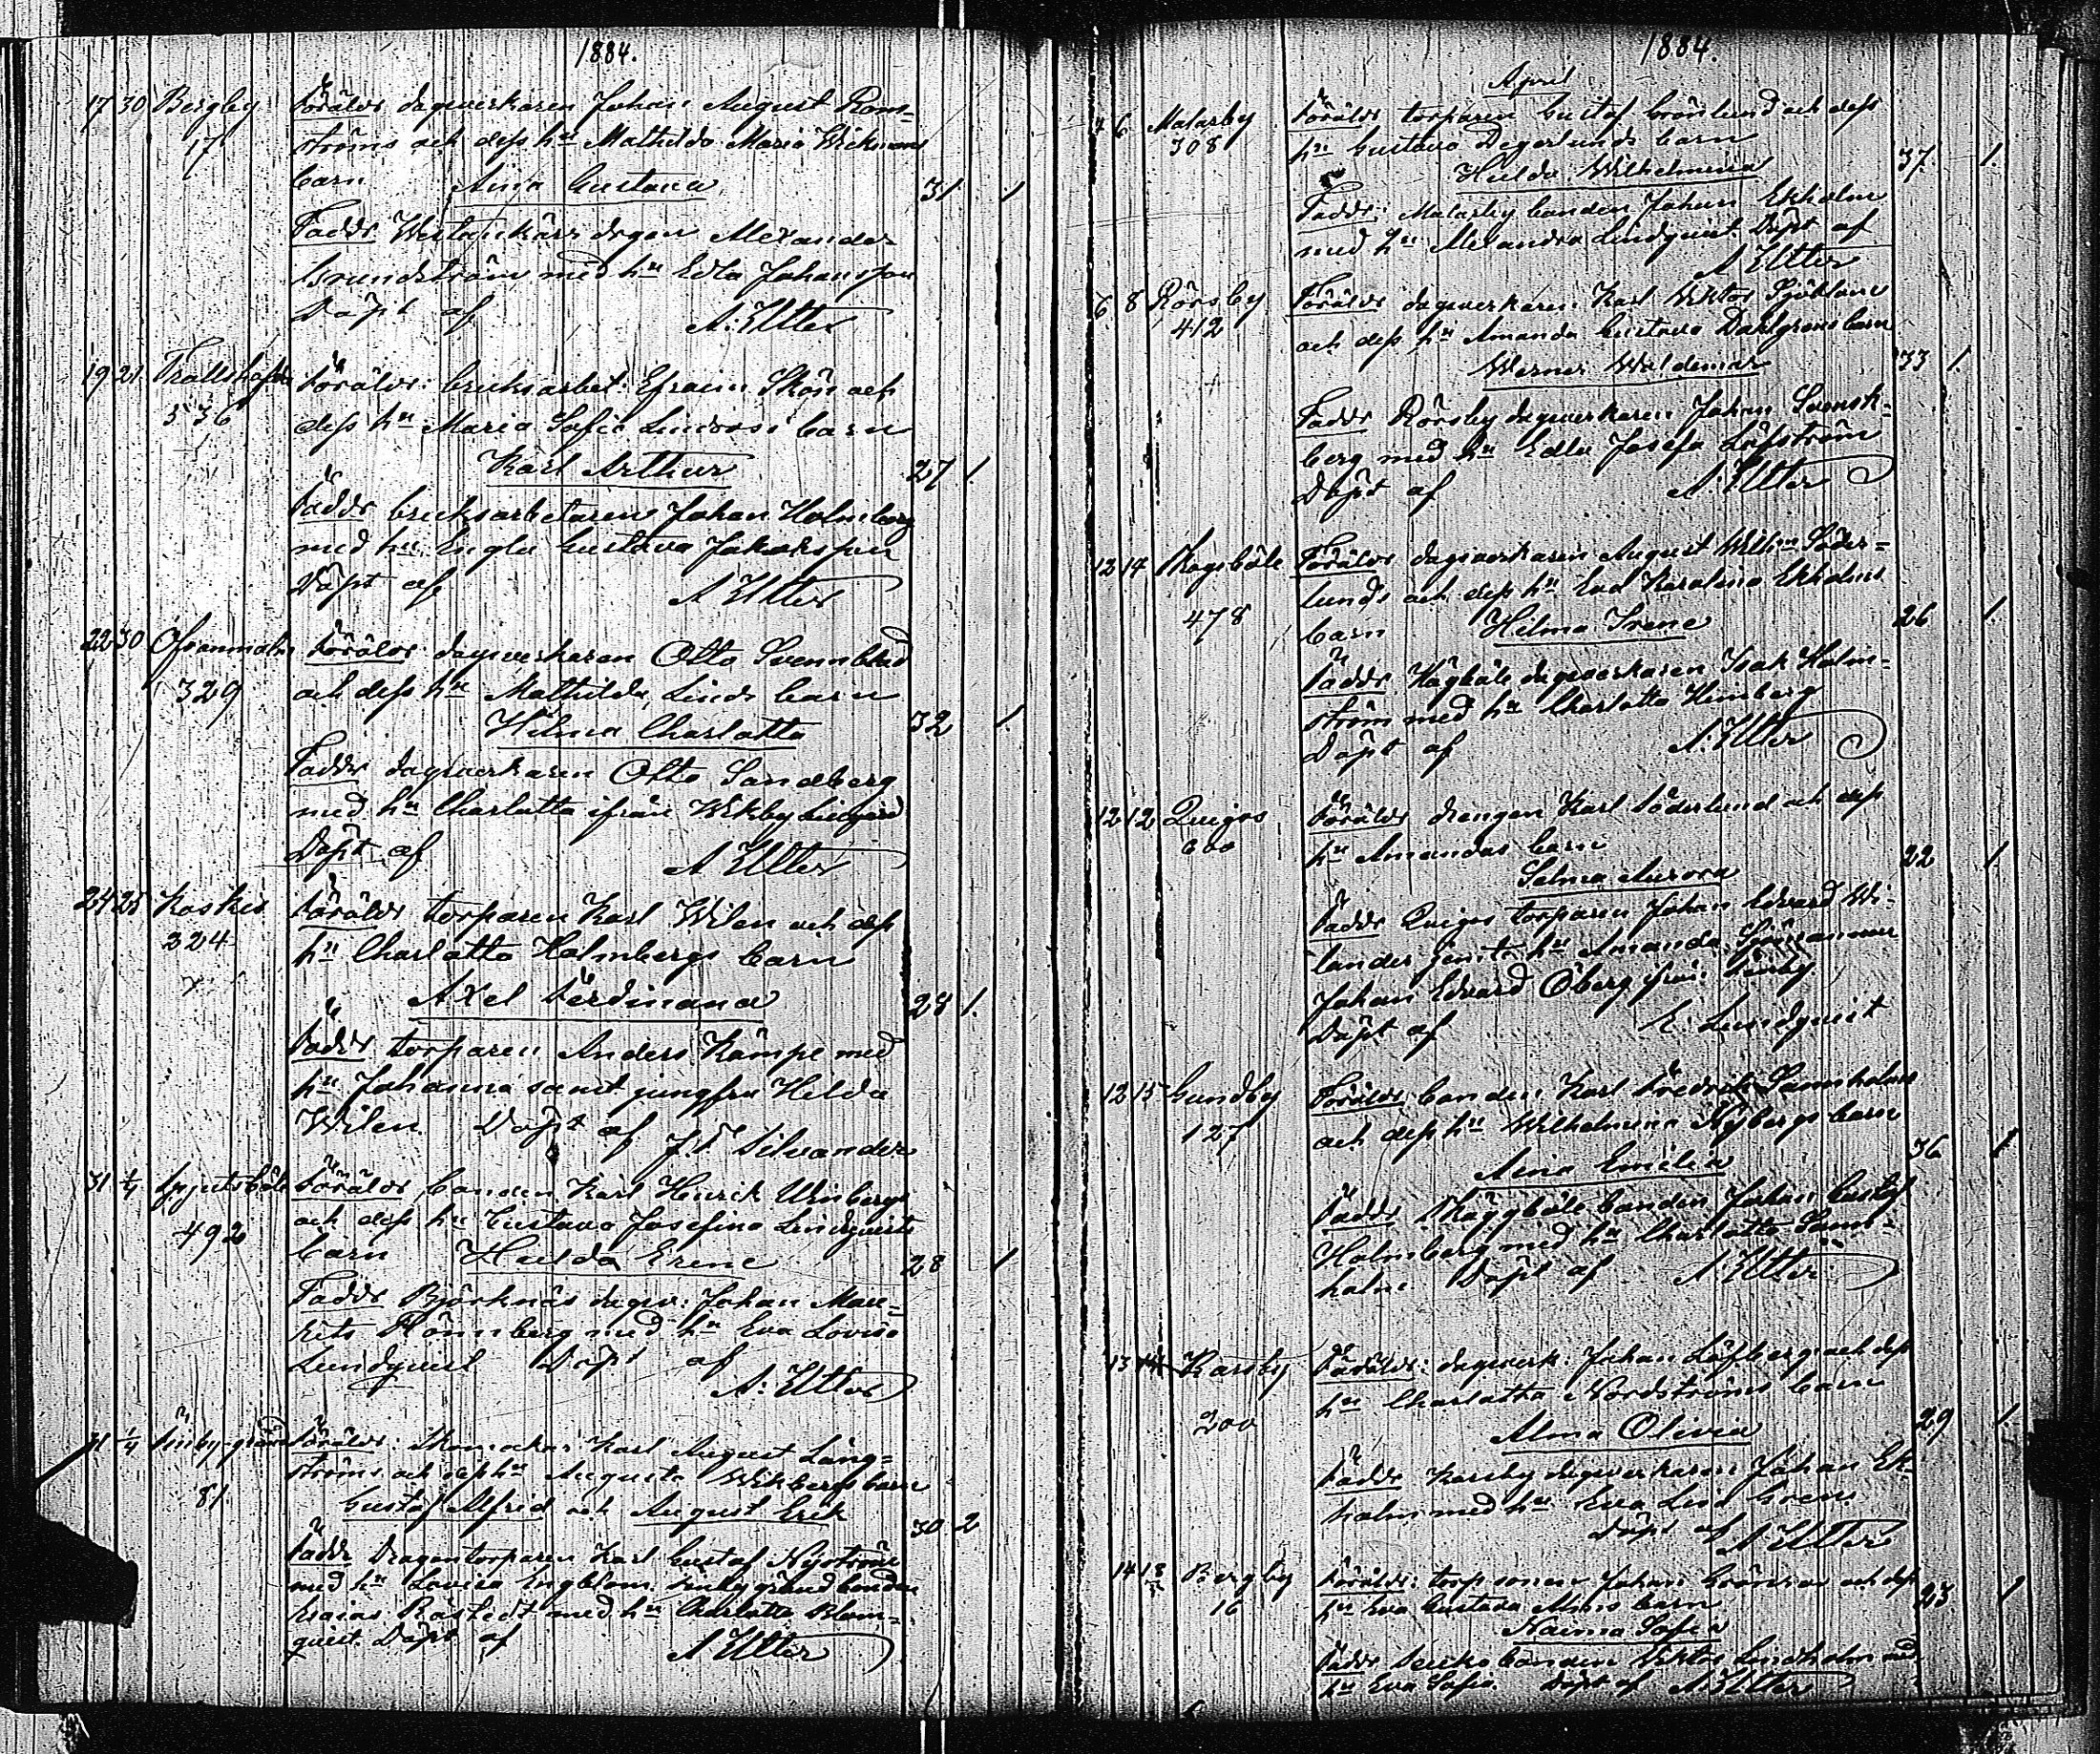 1884.
17 30 Bergby Föräldr dagsverkaren Johan August Rom=
17 ströms och dess hu Mathilda Maria Wickmans
barn Aina Gustava 31 1
Faddr Westankärr drgen Alexander
Grundström med hu Edla Johansson
Döpt af A: Elter
19 21 Föräldr: bruksarbet: Efraim Skön och
536 dess hu Maria Sofia Lindroos barn
Karl Arthur 27 1.
Faddr bruksarbetaren Johan Holmberg
med hu Engla Gustava Jakobsson
Döpt af A Elter
22 30 Ofvanmalm Föräldr dagsverkaren Otto Svennblad
329 och dess hu Mathilda Linds barn
Hilma Charlotta 32 1.
Faddr dagsverkaren Otto Sandberg
med hu Charlotta ifrån Wekby
Döpt af A Elter
24 25 Koskis Föräldr torparen Karl Wilen och dess
224 hu Charlotta Holmbergs barn
Axel Ferdinand 28 1.
Faddr torparen Anders Kämpe med
hu Johanna samt jungfru Hilda
Wilen. Döpt af J. F. Silvander
31 1/4 Föräldr bonden Karl Henrik Winbergs
492 och dess hu Gustava Josefina Lindqvists
barn Hulda Erene 28 1
Faddr Björknäs dagsv: Johan Mau=
rits Rönnberg med hu Eva Lovisa
Lundqvist Döpt af
A: Elter
31 1/4 Föräldr: Skomakar Karl August Lång=
ströms och dess hu Augusta Wekbergs barn
81 Gustaf Alfrid och August Erik 30 2
Faddr Dragontorparen Karl Gustaf Nyström
med hu Lovisa Engblom, bonden
Esaias Råstedt med hu Charlotta Blom=
qvist. Döpt af A Elter
1884.
April
4 6 Malarby Föräldr torparen Gustaf Grönlund och dess
308 hu Gustava Degerlunds barn
Hulda Wilhelmina 37. 1.
Faddr: Malarby bonden Johan Ekholm
med hu Alexandra Lindqvist Döpt af
A Elter
6 8 Rörsby Föräldr dagsverkaren Karl Viktor Sjöblom
412 och dess hu Amanda Gustava Dahlgrens barn
Werner Waldemar 33 1.
Faddr Rörsby dagsverkaren Johan Svensk=
berg med hu Edla Josefa Löfström
Döpt af A: Elter
12 14 Skogböle Föräldr dagsverkaren August Wilhm Söder=
lunds och dess hu Eva Karolina Ekholms
478 barn Hilma Irene 26 1.
Faddr. dagsverkaren Isak Holm=
ström med hu Charlotta Heinberg
Döpt af A: Elter
12 12 Föräldr drengen Karl Söderlund och dess
600 hu Amandas barn 22 1.
Selma Aurora
Faddr torparen Johan Edvard We=
lander jemte hu Amanda
Johan Edvard Öberg från
Döpt af E. Lundqvist
12 15 Gundby Föräldr bonden Karl Fredrik Sannholms
127 och dess hu Wilhelmina Nybergs barn
Aina Emilia 36 1
Faddr Skäggböle bonden Johan Gustaf
Holmberg med hu Charlotta Sann=
holm. Döpt af A Elter
13 14 Karsby Föräldr: dagsverk: Johan Löfberg och dess
200 hu Charlotta Nordströms barn
Alma Olivia 29 1.
Faddr Karsby dagsverkaren Johan Ek=
holm med hu Eva Lisa Grens
Döpt af A Elter
14 18 Bergby Föräldr: torpsonen Johan och dess
16 hu Eva Gustava Alms barn 23 1
Naima Sofia
Faddr bonden Viktor Lindholm med
hu Eva Sofia. Döpt af A Elter